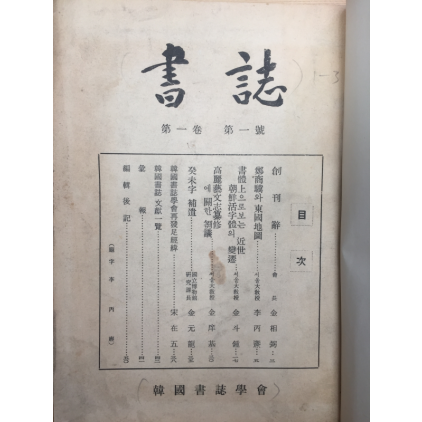 書誌
1-3
第一卷 第一號
目次
創刊辭 會長 金相弼
鄭尙驥와 東國地圖 서울大敎授 李丙燾
書體上으로 보는 近世
朝鮮活字體의 變遷 서울大敎授 金斗鍾
高麗藝文志纂修
에 關한 芻議 서울大敎授 金庠基
癸未字 補遺 國立博物館 硏究課長 金元龍
韓國書誌學會再發足經緯 宋在五
韓國書誌文獻一覽
彙報
編輯後記
(題字 李丙燾)
韓國書誌學會